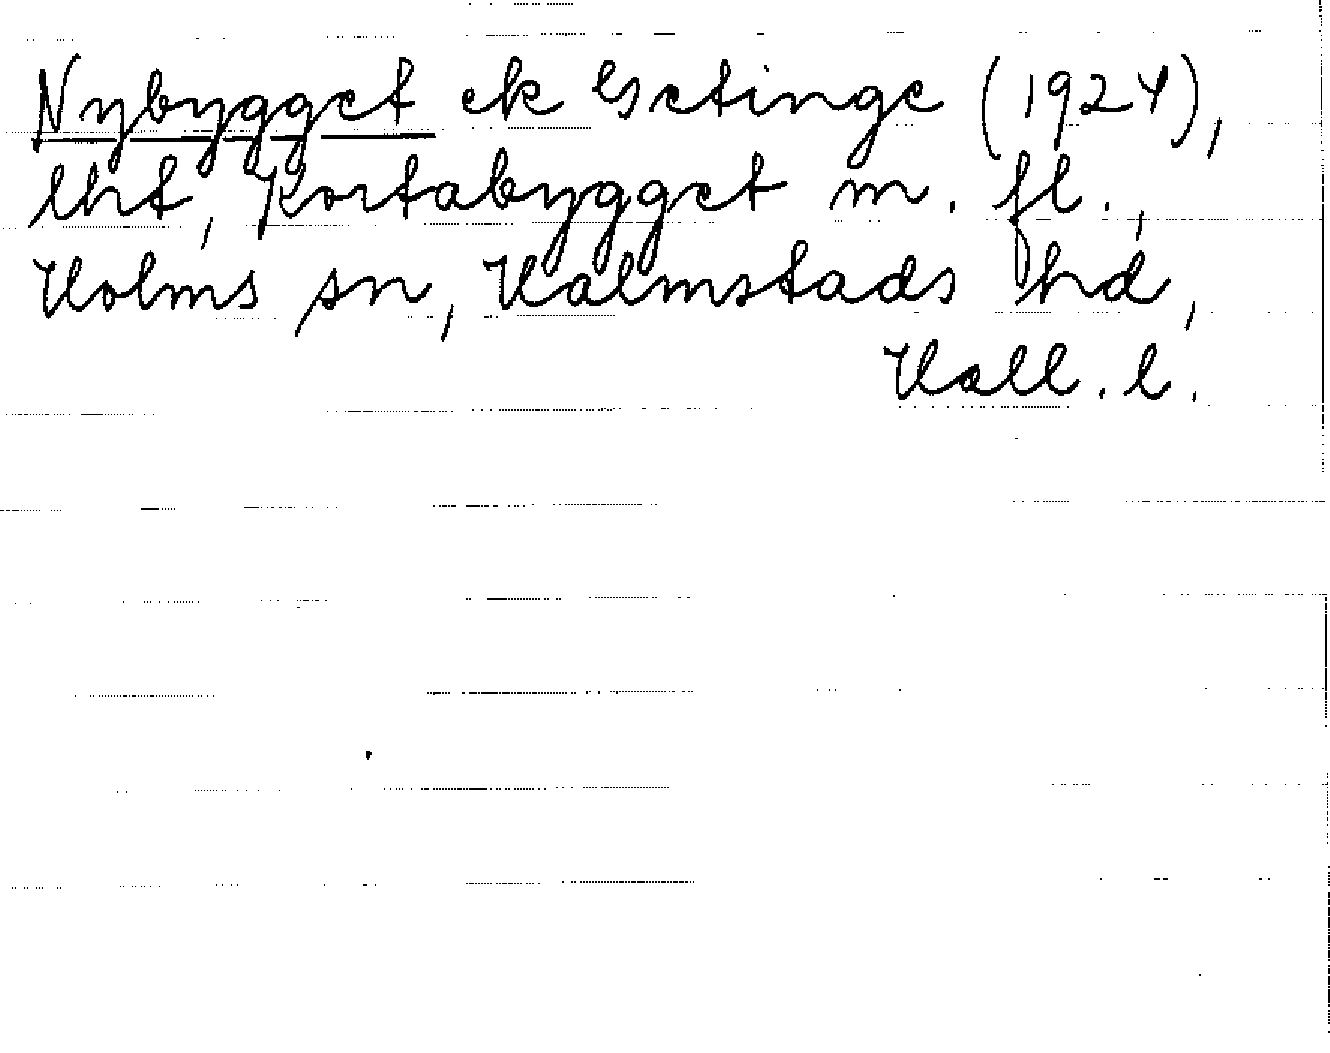 Nybygget ek Getinge (1924),
lht, Kortabygget m. fl.,
Holms sn, Halmstads hd,
Hall. l.